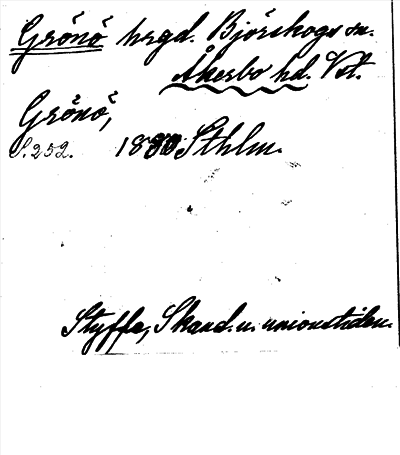 Grönö hrgd. Björskogs sn.
Åkerbo hd. Vstm.
Grönö,
S. 252. 1880 Sthlm.
Styffe, Skand. u. unionstiden.